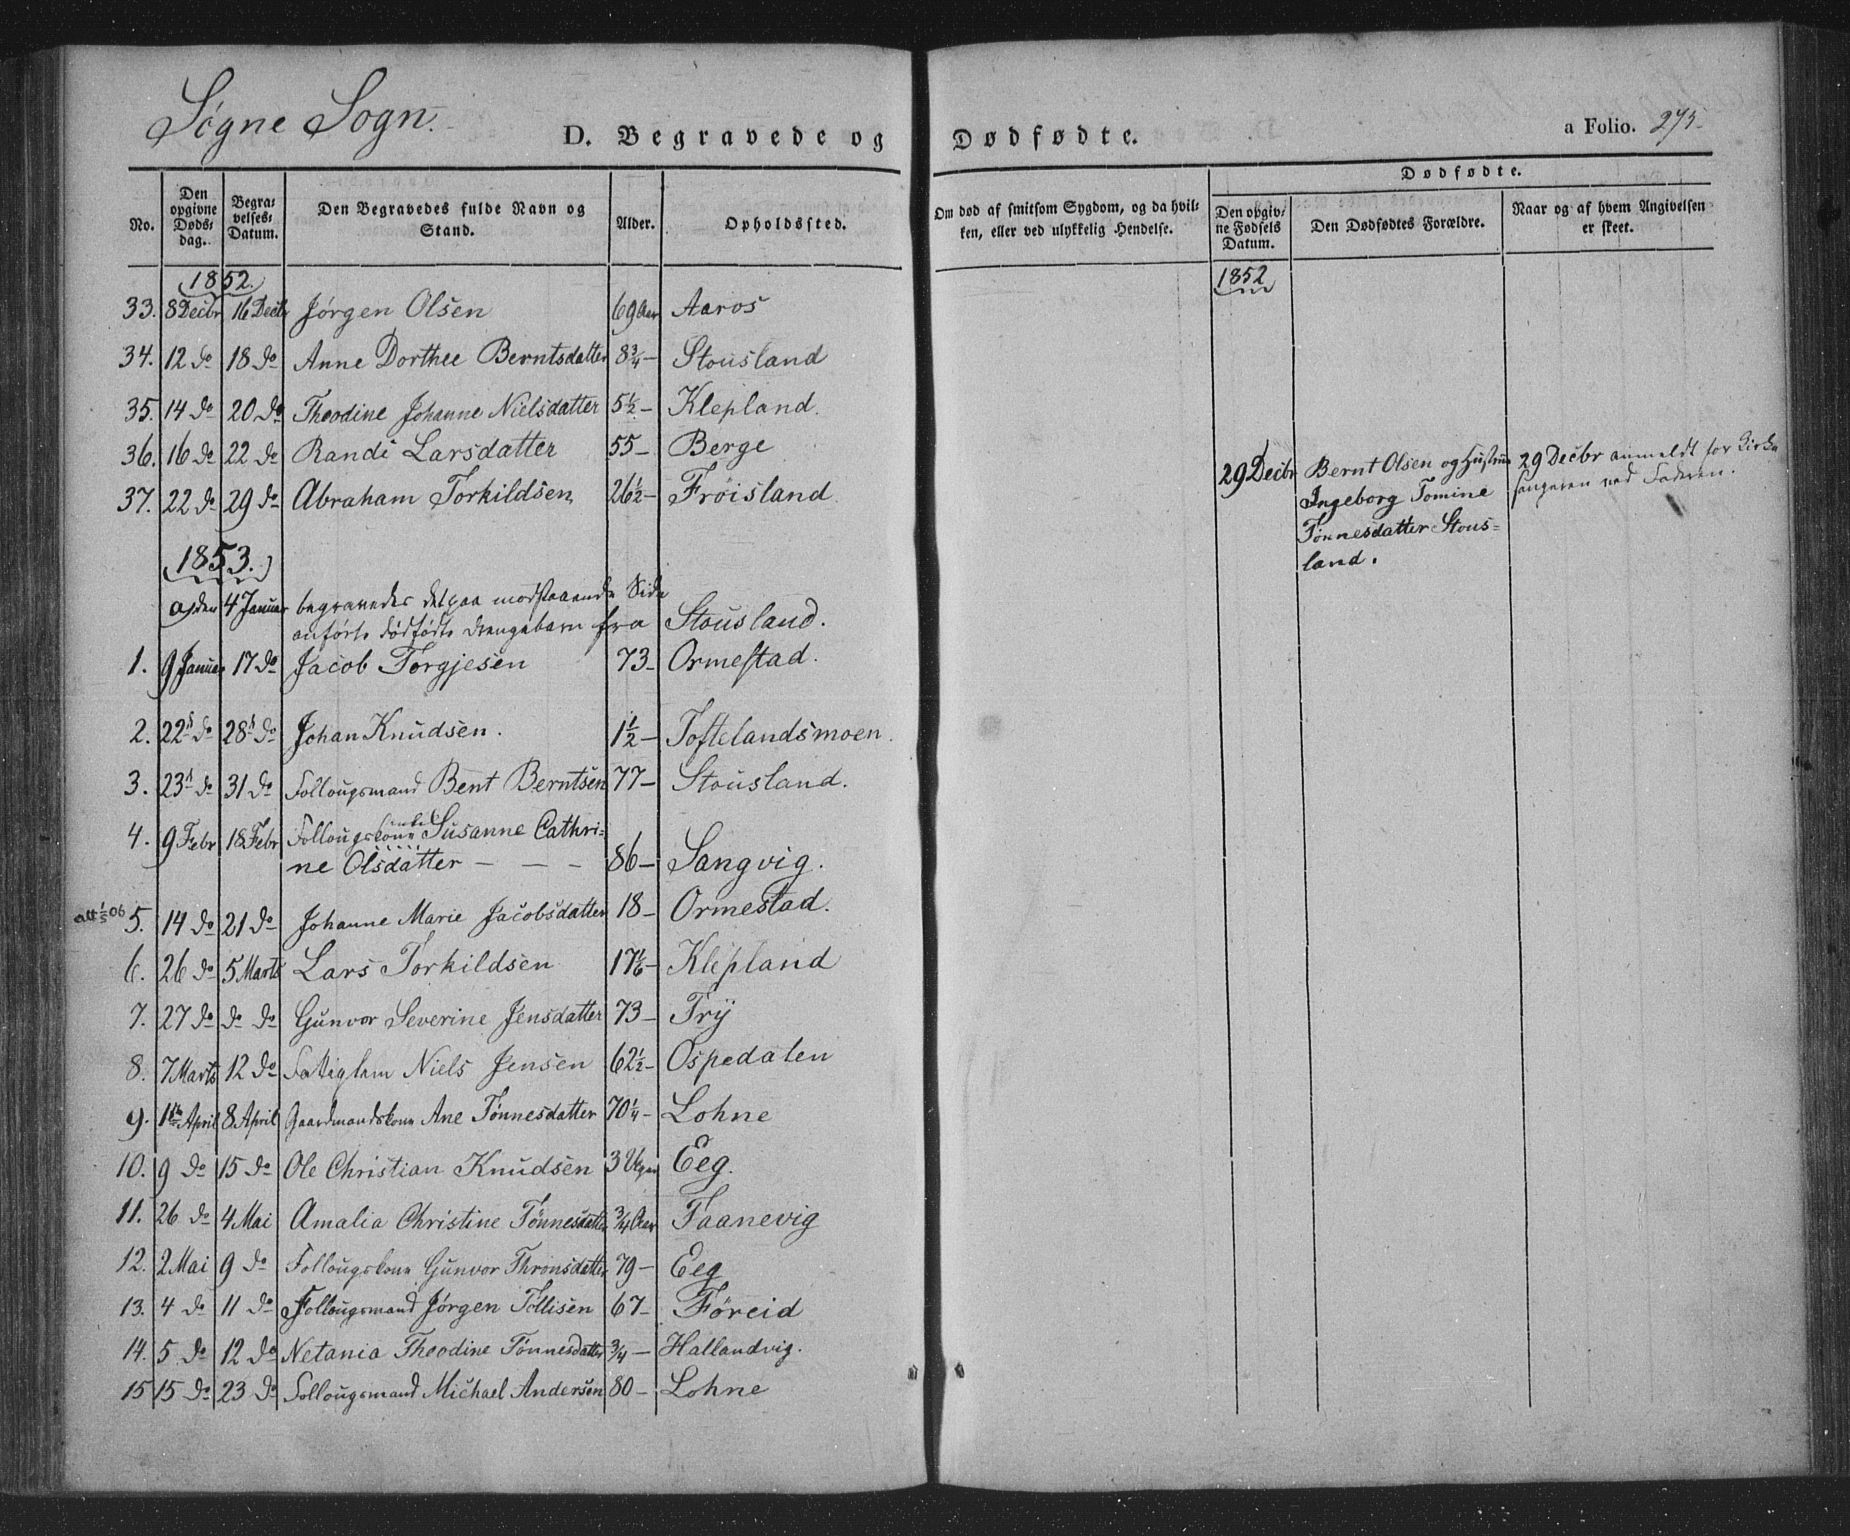 Søgne Sogn.
D. Begravede og Dødfødte.
a Folio. 275.
No. | Den opgivne Døds-dag. | Begravelses-Datum. | Den Begravedes fulde Navn og Stand. | Alder. | Opholdssted. | Om død af smitsom Sygdom, og da hvilken, eller ved ulykkelig Hendelse. | Dødfødte. | Den opgivne Fødsels Datum. | Den Dødfødtes Forældre. | Naar og af hvem Angivelsen er skeet.
1852.
33. 8 Decbr 16 Decbr Jørgen Olsen 69 Aar Aaros
34. 12 do 18 do Anne Dorthee Berntsdatter 8 3/4 – Stousland
35. 14 do 20 do Theodine Johanne Nielsdatter 5 1/2 – Klepland.
36. 16 do 22 do Randi Larsdatter 55 – Berge
37. 22 do 29 do Abraham Torkildsen 26 1/2 – Frøisland
1853.
a) den 4 Januar begravedes det paa modstaaende Side
anførte dødfødte Drengebarn fra Stousland.
1. 9 Januar 17 do Jacob Torgjesen 73 – Ormestad.
2. 22 do 28 do Johan Knudsen. 1 1/2 – Toftelandsmoen.
3. 23 do 31 do Follougsmand Bent Berntsen 77 – Stousland.
4. 9 Febr 18 Febr Follougskone enke Susanne Cathri-
ne Olsdatter – – – 86 – Sangvig.
att 1/5 06 5. 14 do 21 do Johanne Marie Jacobsdatter 18 – Ormestad.
6. 26 do 5 Marts Lars Torkildsen 17 1/6 – Klepland
7. 27 do do do Gunvor Severine Jensdatter 73 – Trÿ
8. 7 Marts 12 do Fattiglem Niels Jensen 62 1/2 – Ospedalen
9. 1ste April 8 April Gaardmandskone Ane Tønnesdatter 70 1/4 – Lohne
10. 9 do 15 do Ole Christian Knudsen 3 Uger Eeg.
11. 26 do 4 Mai Amalia Christine Tønnesdatter 3/4 Aar Faanevig
12. 2 Mai 9 do Follougskone Gunvor Thronsdatter 79 – Eeg
13. 4 do 11 do Follougsmand Jørgen Tollisen 67 – Føreid
14. 5 do 12 do Netania Theodine Tønnesdatter 3/4 – Hallandvig.
15 15 do 23 do Follougsmand Michael Andersen 80 – Lohne
1852
29 Decbr Bernt Olsen og Hustrue 29 Decbr anmeldt for Kirke
Ingeborg Tomine sangeren ved Faderen.
Tønnesdatter Stous-
land.